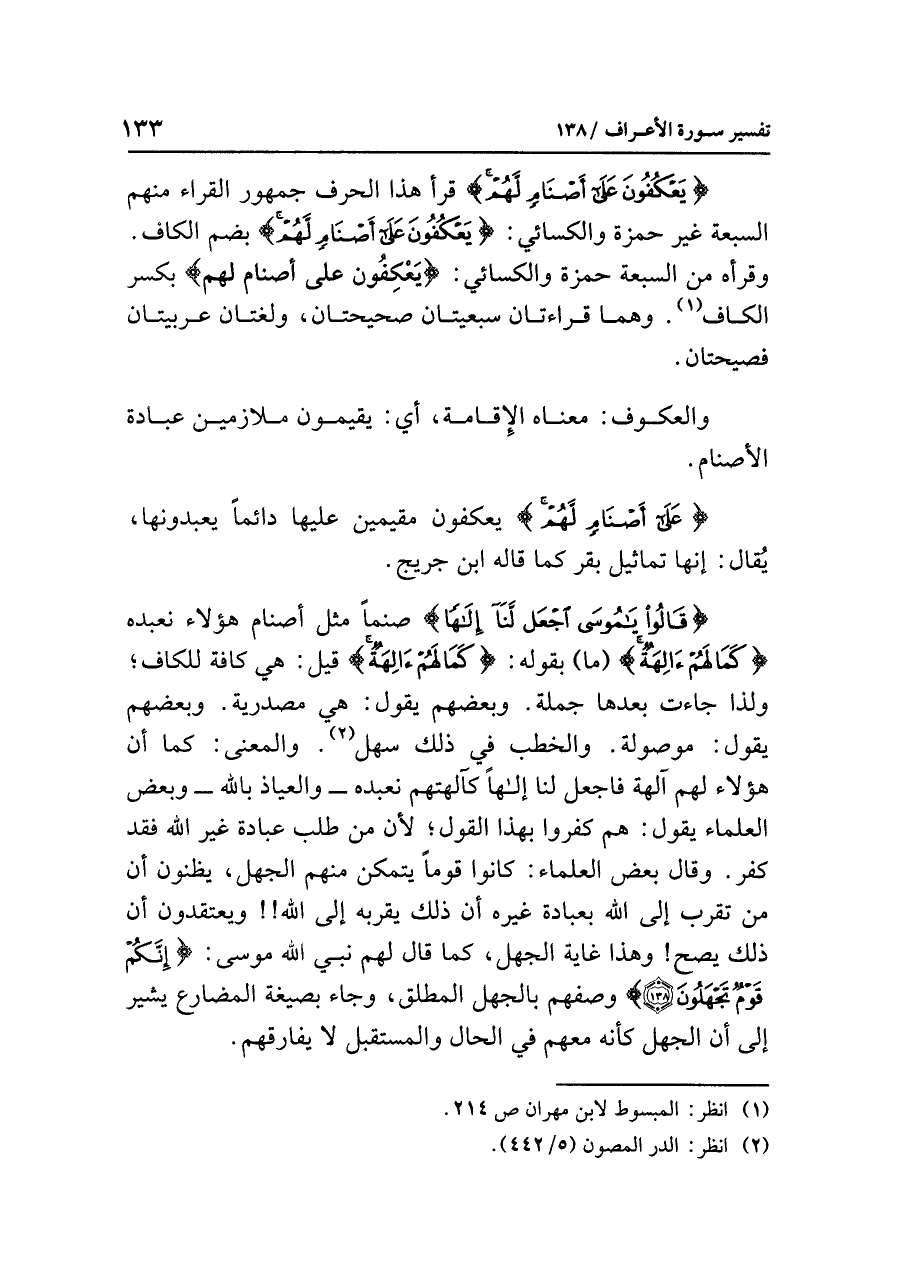 تفسير سـورة الأعـراف / ١٣٨ ١٣٣
﴿ يَعْكُفُونَ عَلَىٰٓ أَصْنَامٍ لَّهُمْۚ ﴾ قرأ هذا الحرف جمهور القراء منهم
السبعة غير حمزة والكسائي: ﴿ يَعْكُفُونَ عَلَىٰٓ أَصْنَامٍ لَّهُمْۚ ﴾ بضم الكاف.
وقرأه من السبعة حمزة والكسائي: ﴿يَعْكِفُون على أصنام لهم﴾ بكسر
الكـاف(١). وهمـا قـراءتـان سبعيتـان صحيحتـان، ولغتـان عـربيتـان
فصيحتان.
والعكـوف: معنـاه الإقـامـة، أي: يقيمـون مـلازميـن عبـادة
الأصنام.
﴿ عَلَىٰٓ أَصْنَامٍ لَّهُمْۚ ﴾ يعكفون مقيمين عليها دائماً يعبدونها،
يُقال: إنها تماثيل بقر كما قاله ابن جريج.
﴿ قَالُوا۟ يَٰمُوسَى ٱجْعَل لَّنَآ إِلَٰهًا ﴾ صنماً مثل أصنام هؤلاء نعبده
﴿ كَمَا لَهُمْ ءَالِهَةٌۚ ﴾ (ما) بقوله: ﴿ كَمَا لَهُمْ ءَالِهَةٌۚ ﴾ قيل: هي كافة للكاف؛
ولذا جاءت بعدها جملة. وبعضهم يقول: هي مصدرية. وبعضهم
يقول: موصولة. والخطب في ذلك سهل(٢). والمعنى: كما أن
هؤلاء لهم آلهة فاجعل لنا إلٰهاً كآلهتهم نعبده ــ والعياذ بالله ــ وبعض
العلماء يقول: هم كفروا بهذا القول؛ لأن من طلب عبادة غير الله فقد
كفر. وقال بعض العلماء: كانوا قوماً يتمكن منهم الجهل، يظنون أن
من تقرب إلى الله بعبادة غيره أن ذلك يقربه إلى الله!! ويعتقدون أن
ذلك يصح! وهذا غاية الجهل، كما قال لهم نبـي الله موسى: ﴿ إِنَّكُمْ
قَوْمٌ تَجْهَلُونَ ١٣٨ ﴾ وصفهم بالجهل المطلق، وجاء بصيغة المضارع يشير
إلى أن الجهل كأنه معهم في الحال والمستقبل لا يفارقهم.
(١) انظر: المبسوط لابن مهران ص ٢١٤.
(٢) انظر: الدر المصون (٥/ ٤٤٢).